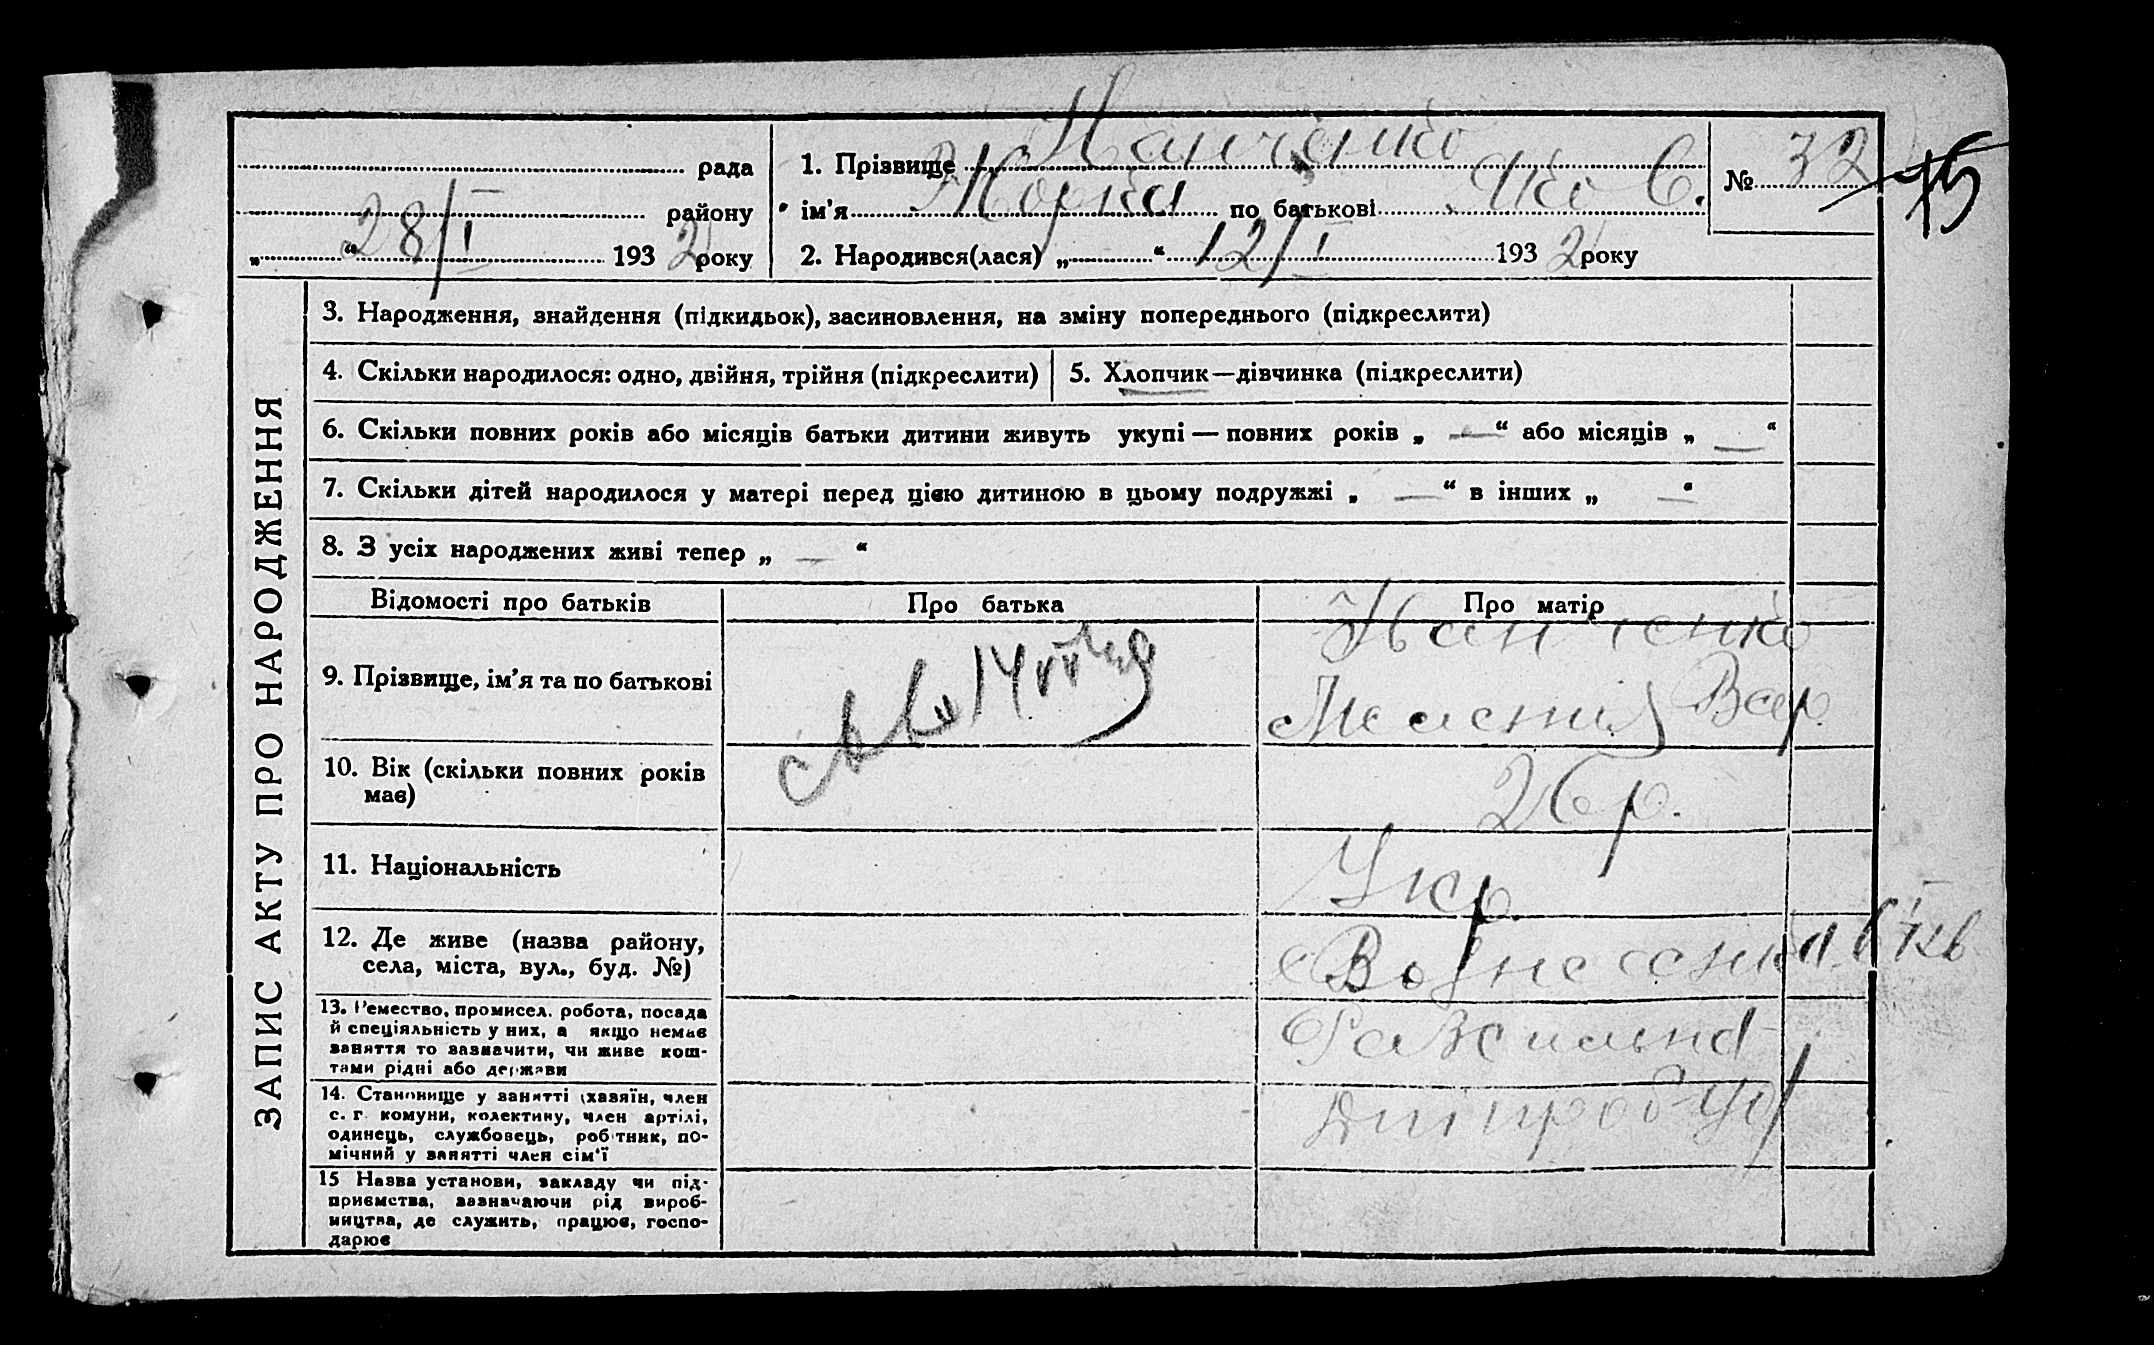 рада
району
„ “ 28/I 1932 року
1. Прізвище
ім'я по батькові
2. Народився(лася) „ “ 12/I 1932 року
№ 32 75
ЗАПИС АКТУ ПРО НАРОДЖЕННЯ
3. Народження, знайдення (підкидьок), засиновлення, на зміну попереднього (підкреслити)
4. Скільки народилося: одно, двійня, трійня (підкреслити)
5. Хлопчик—дівчинка (підкреслити)
6. Скільки повних років або місяців батьки дитини живуть укупі — повних років „ — “ або місяців „ — “
7. Скільки дітей народилося у матері перед цією дитиною в цьому подружжі „ — “ в інших „ — “
8. З усіх народжених живі тепер „ — “
Відомості про батьків
Про батька
Про матір
9. Прізвище, ім'я та по батькові
10. Вік (скільки повних років
має)
26 р.
11. Національність
Укр.
12. Де живе (назва району,
села, міста, вул., буд. №)
Вознесенка
13. Ремество, промисел, робота, посада
й спеціяльність у них, а якщо немає
заняття то зазначити, чи живе кош-
тами рідні або держави
14. Становище у занятті (хазяїн, член
с. г. комуни, колективу, член артілі,
одинець, службовець, робітник, по-
мічний у занятті член сім'ї
15 Назва установи, закладу чи під-
приємства, зазначаючи рід вироб-
ництва, де служить, працює, госпо-
дарює